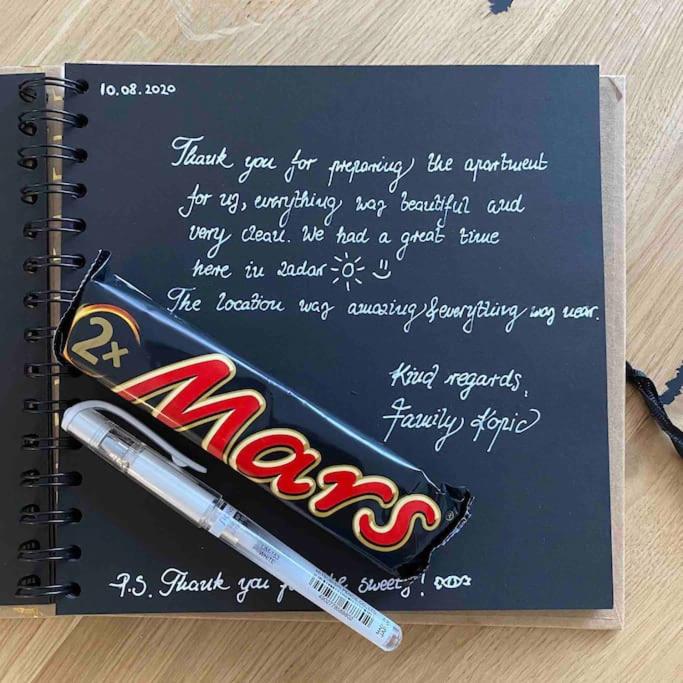 10.08.2020
Thank you for preparing the apartment
for us, everything was beautiful and
very clean. We had a great time
here in Zadar
The location was amazing & everything was near.
Kind regards,
Family Kopic
2x
Mars
P.S. Thank you for the sweets!